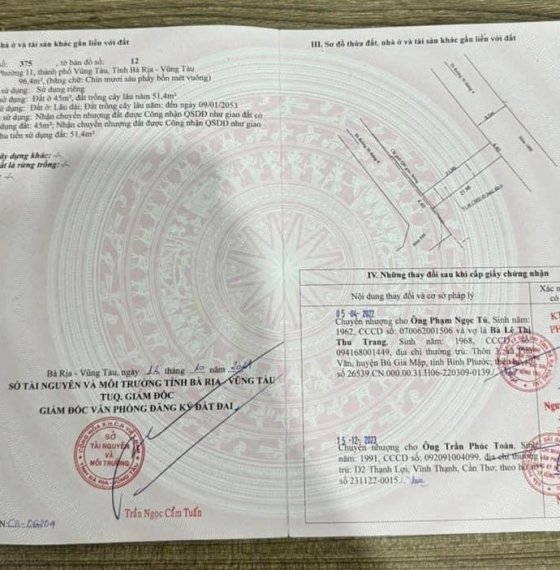 nhà ở và tài sản khác gắn liền với đất
số: 375 , tờ bản đồ số: 12
Phường 11, thành phố Vũng Tàu, Tỉnh Bà Rịa - Vũng Tàu
96,4m², (bằng chữ: Chín mươi sáu phẩy bốn mét vuông)
sử dụng: Sử dụng riêng
sử dụng: Đất ở 45m², đất trồng cây lâu năm 51,4m²
sử dụng: Đất ở: Lâu dài; Đất trồng cây lâu năm: đến ngày 09/01/2053
sử dụng: Nhận chuyển nhượng đất được Công nhận QSDĐ như giao đất có
dụng đất: 45m²; Nhận chuyển nhượng đất được Công nhận QSDĐ như giao
thu tiền sử dụng đất: 51,4m²
xây dựng khác: -/-
ất là rừng trồng: -/-
: -/-
Bà Rịa - Vũng Tàu, ngày 12 tháng 10 năm 2021
SỞ TÀI NGUYÊN VÀ MÔI TRƯỜNG TỈNH BÀ RỊA - VŨNG TÀU
TUQ. GIÁM ĐỐC
GIÁM ĐỐC VĂN PHÒNG ĐĂNG KÝ ĐẤT ĐAI
SỞ
TÀI NGUYÊN
VÀ
MÔI TRƯỜNG
Trần Ngọc Cẩm Tuấn
III. Sơ đồ thửa đất, nhà ở và tài sản khác gắn liền với đất
IV. Những thay đổi sau khi cấp giấy chứng nhận
Nội dung thay đổi và cơ sở pháp lý
Xác n
có
05 -04- 2022
Chuyển nhượng cho Ông Phạm Ngọc Tú, Sinh năm:
1962, CCCD số: 070062001506 và vợ là Bà Lê Thị
Thu Trang, Sinh năm: 1968, CCCD số:
094168001449, địa chỉ thường trú: Thôn
Văn, huyện Bù Gia Mập, tỉnh Bình Phước; theo hồ sơ
số 26539.CN.000.00.31.H06-220309-0139.
15 -12- 2023
Chuyển nhượng cho Ông Trần Phúc Toàn, Sinh
năm: 1991, CCCD số: 092091004099, địa chỉ thường
trú: D2 Thạnh Lợi, Vĩnh Thạnh, Cần Thơ; theo hồ sơ
số 231122-0015./.